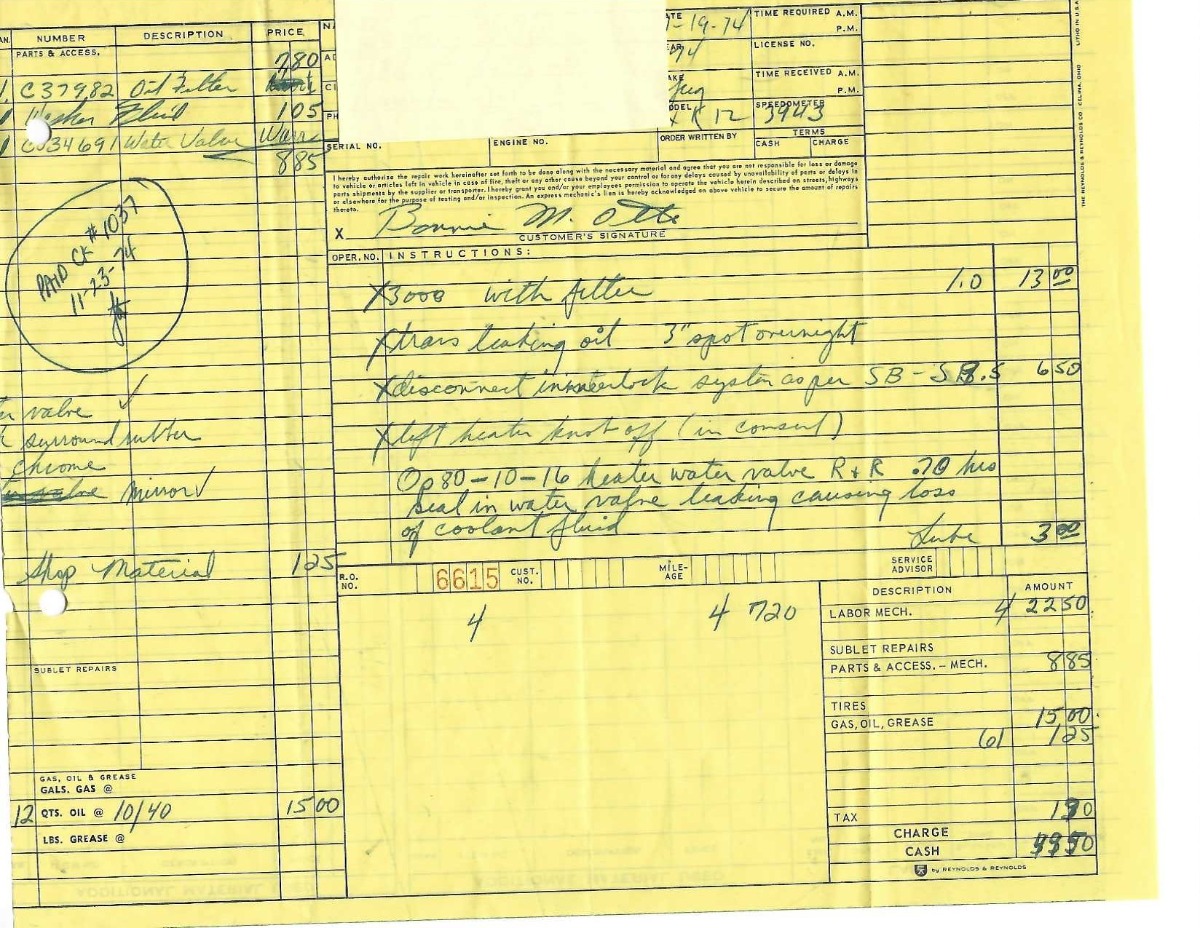 NUMBER DESCRIPTION PRICE
PARTS & ACCESS. 780
1 C37982 Oil Filter
1 Washer Fluid 105
1 C34691 Water Valve Warr
885
PAID CK #1037
11-23-74
ter valve ✓
surround rubber
chrome
mirror ✓
Shop Material 125
SUBLET REPAIRS
GAS, OIL & GREASE
GALS. GAS @
12 QTS. OIL @ 10/40 1500
LBS. GREASE @
-19-74 TIME REQUIRED A.M.
P.M.
74 LICENSE NO.
TIME RECEIVED A.M.
Jag P.M.
K 12 SPEEDOMETER 3943
ORDER WRITTEN BY TERMS
CASH CHARGE
SERIAL NO. ENGINE NO.
I hereby authorize the repair work hereinafter set forth to be done along with the necessary material and agree that you are not responsible for loss or damage
to vehicle or articles left in vehicle in case of fire, theft or any other cause beyond your control or for any delays caused by unavailability of parts or delays in
parts shipments by the supplier or transporter. I hereby grant you and/or your employees permission to operate the vehicle herein described on streets, highways
or elsewhere for the purpose of testing and/or inspection. An express mechanic's lien is hereby acknowledged on above vehicle to secure the amount of repairs
thereto.
X Bonnie M. Otte
CUSTOMER'S SIGNATURE
OPER. NO. INSTRUCTIONS:
X 3000 with filter 1.0 13 00
X trans leaking oil 3" spot overnight
X disconnect interlock system as per SB - .5 6 50
X left heater knob off (in consul)
Op 80-10-16 heater water valve R & R .70 hrs
Seal in water valve leaking causing loss
of coolant fluid
Lube 3 00
R.O. NO. 6615 CUST. NO. MILE-AGE SERVICE ADVISOR
4 4 720
DESCRIPTION AMOUNT
LABOR MECH. 4 2250
SUBLET REPAIRS
PARTS & ACCESS. – MECH. 885
TIRES
GAS, OIL, GREASE 1500
61 125
TAX
CHARGE
CASH
by REYNOLDS & REYNOLDS
THE REYNOLDS & REYNOLDS CO., CELINA, OHIO LITHO IN U.S.A.